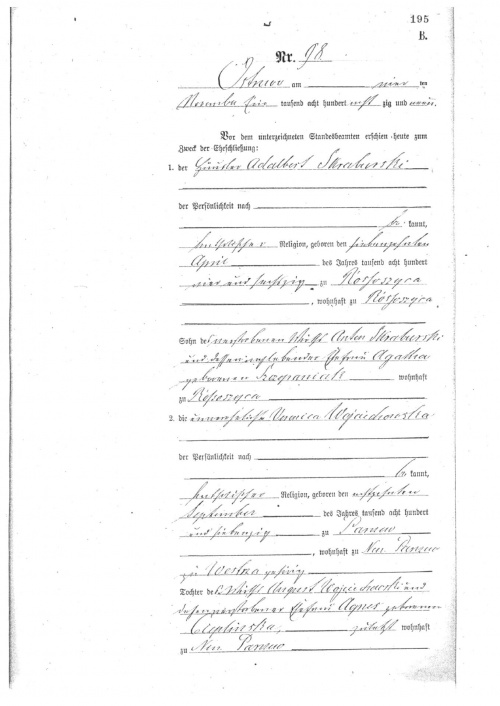 195
B.
Nr. 98
Ostrowo am vier ten
November Ein tausend acht hundert acht zig und neun.
Vor dem unterzeichneten Standesbeamten erschien heute zum
Zweck der Eheschließung:
1. der Häusler Adalbert Skraburski
der Persönlichkeit nach
be kannt,
katholischer Religion, geboren den siebenzehnten
April des Jahres tausend acht hundert
vier und sechszig zu Rossoszyca
, wohnhaft zu Rossoszyca
Sohn des verstorbenen Anton Skraburski
und dessen Ehefrau Agatha
geborenen Szczepaniak wohnhaft
zu Rossoszyca
2. die unverehelichte Veronica Wojciechowska
der Persönlichkeit nach
be kannt,
katholischer Religion, geboren den achtzehnten
September des Jahres tausend acht hundert
und siebenzig zu Parsew
, wohnhaft zu Neu Parsew
zu gehörig
Tochter des August Wojciechowski und
dessen verstorbener Ehefrau Agnes geborenen
Cieplinska, zuletzt wohnhaft
zu Neu Parsew